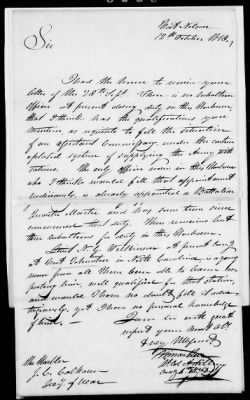 Fort Nelson
12th October 1818
Sir
I had the honor to receive your
letter of the 28th Sept. There is no subaltern
officer at present doing duty in this Harbour
that I think has the qualifications you
mention, as requisite to fill the situation
of an assistant Commissary under the contem
plated system of supplying the Army with
rations. The only officer in this Harbour
who I think would fill that appointment
judiciously, is already appointed a Battalion
Quarter Master and has some time since
commenced that duty. There remains but
three subalterns for duty in this Harbour.
Lieut. N. G. at present Comdg
at Fort Johnston in North Carolina is a young
man from all I have been able to learn, res
pecting him, well qualified for that station,
and would I have no doubt fill it advan
tageously, yet I have no personal knowledge
of him.
I am Sir with great
respect your most obt
Servt
The Honble
J. C. Calhoun
Secy of War